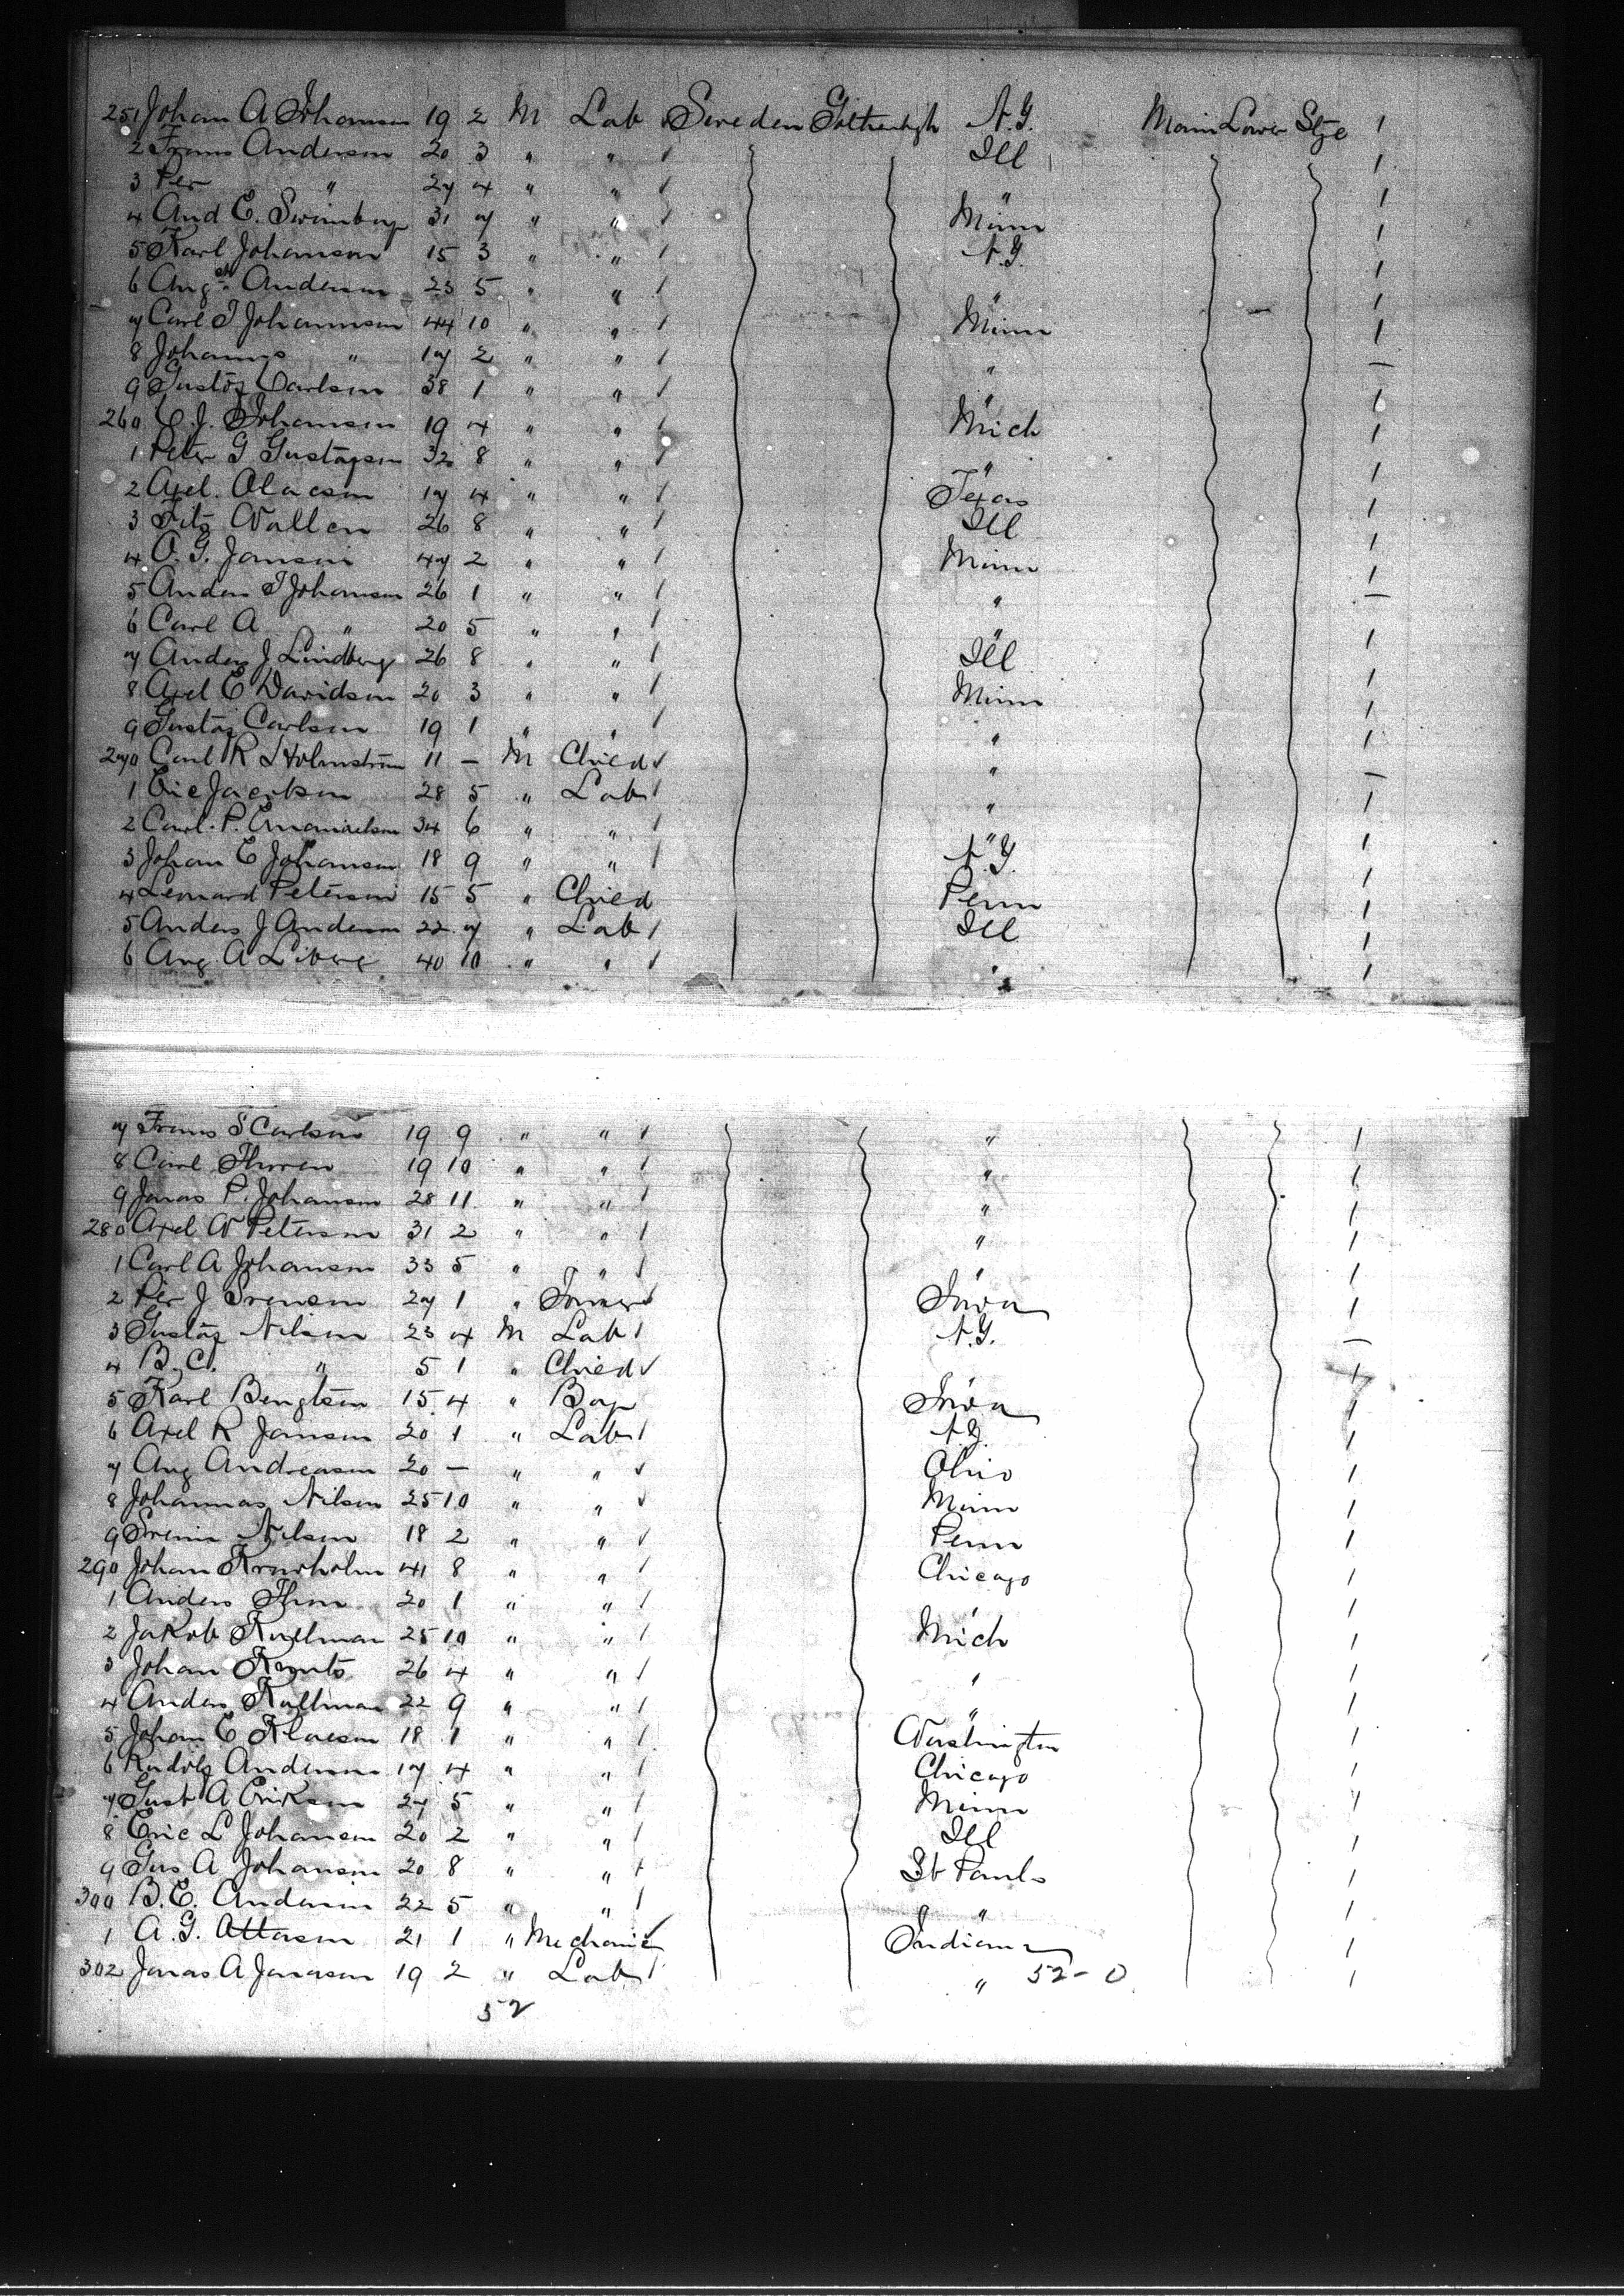 251 Johan A Johanson 19 2 M Lab / Sweden Gothenbgh N.Y. Main Lower Stge 1
2 Frans Anderson 20 3 " " / Ill 1
3 Per " 27 4 " " / " 1
4 And E. 31 7 " " / Minn 1
5 Karl Johanson 15 3 " " / N.Y. 1
6 Augst Anderson 23 5 " " / " 1
7 Carl J Johannson 44 10 " " / Minn 1
8 Johannes " 17 2 " " / "
9 Gustaf Carlson 38 1 " " / " 1
260 C. J. Johanson 19 4 " " / Mich 1
1 Peter G Gustafson 32 8 " " / " 1
2 Axel Olacson 17 4 " " / Texas 1
3 Fitz Wallen 26 8 " " / Ill 1
4 O. G. Janson 47 2 " " / Minn 1
5 Anders J Johanson 26 1 " " / "
6 Carl A " 20 5 " " / " 1
7 Anders J Lindberg 26 8 " " / Ill 1
8 Axel E Davidson 20 3 " " / Minn 1
9 Gustaf Carlson 19 1 " " / " 1
270 Carl R Holmström 11 – M Chied / "
1 Eric Jacobson 28 5 " Lab / " 1
2 Carl P. Emanuelson 34 6 " " / " 1
3 Johan E Johanson 18 9 " " / N.Y. 1
4 Lennard Peterson 15 5 " Chied Penn 1
5 Anders J Anderson 22 7 " Lab / Ill 1
6 Aug A Liberg 40 10 " " / " 1
7 Frans S Carlson 19 9 " " / " 1
8 Carl Thoren 19 10 " " / " 1
9 Jonas P. Johanson 28 11 " " / " 1
280 Axel W Peterson 31 2 " " / " 1
1 Carl A Johanson 33 5 " " / " 1
2 Per J Svenson 27 1 " / Iowa 1
3 Gustaf Nilson 23 4 M Lab / N.Y.
4 B. C. " 5 1 " Chied / 1
5 Karl Bengtson 15 4 " Boy Iowa 1
6 Axel R Janson 20 1 " Lab / N.Y. 1
7 Aug Andreason 20 – " " / Ohio 1
8 Johannas Nilson 25 10 " " / Minn 1
9 Nilson 18 2 " " / Penn 1
290 Johan Kronholm 41 8 " " / Chicago 1
1 Anders Thon 20 1 " " / " 1
2 Jakob Kullman 25 10 " " / Mich 1
3 Johan Knuts 26 4 " " / " 1
4 Anders Kullman 22 9 " " / " 1
5 Johan E Klacson 18 1 " " / Washington 1
6 Rudolf Anderson 17 4 " " / Chicago 1
7 Gust A Erikson 27 5 " " / Minn 1
8 Eric L Johanson 20 2 " " / Ill 1
9 Gus A Johanson 20 8 " " / St Pauls 1
300 B. E. Anderson 22 5 " " / " " 1
1 A. G. Attason 21 1 " Mechanic / Indiana 1
302 Jonas A Jonason 19 2 " Lab / " 52-0 1
52